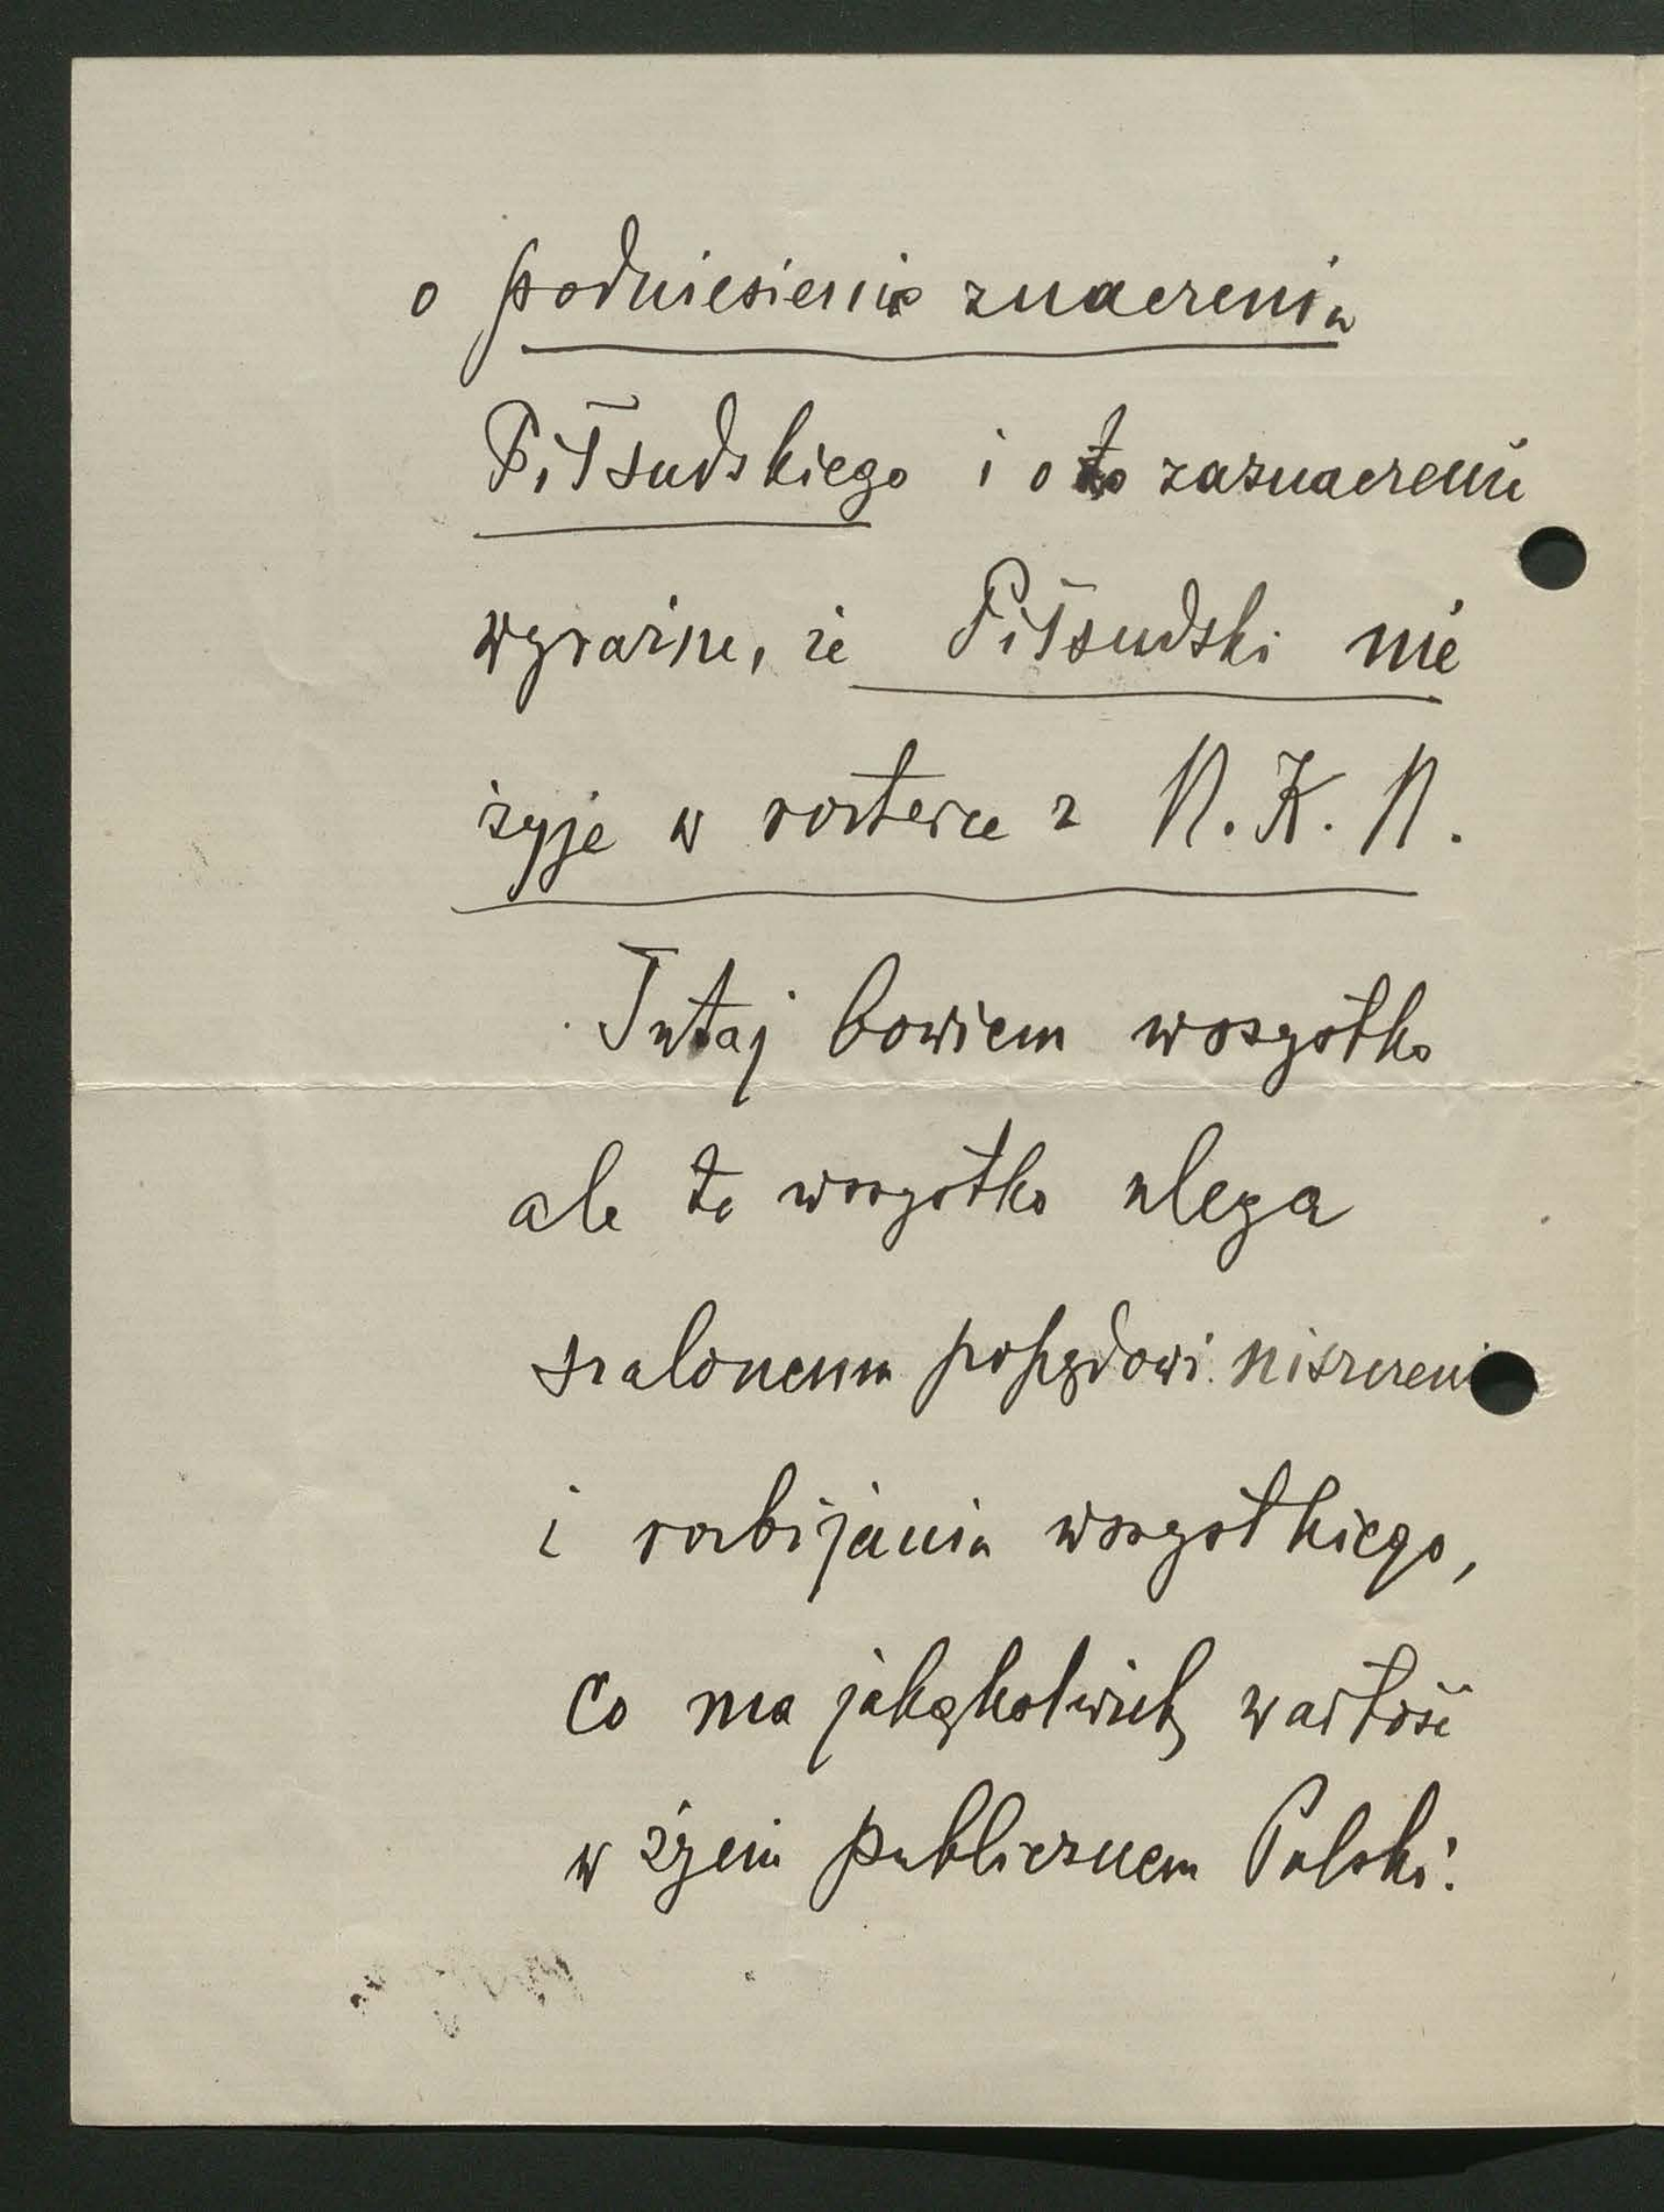 o podniesienie znaczenia
Piłsudskiego i o to zaznaczenie
wyraźne, że Piłsudski nie
żyje w rozterce z N. K. N.
Tutaj bowiem wszystko
ale to wszystko ulega
szalonemu popędowi niszczeni
i rozbijania wszystkiego,
co ma jakąkolwiek wartość
w życiu publicznem Polski.